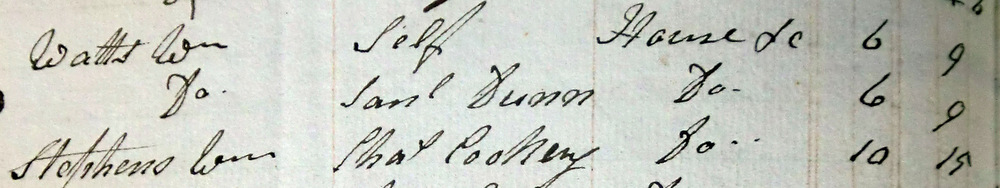 Watts Wm Self House &c 6 9
Do. Saml Dunn Do- 6 9
Stephens Wm Chas Cookery Do.. 10 15